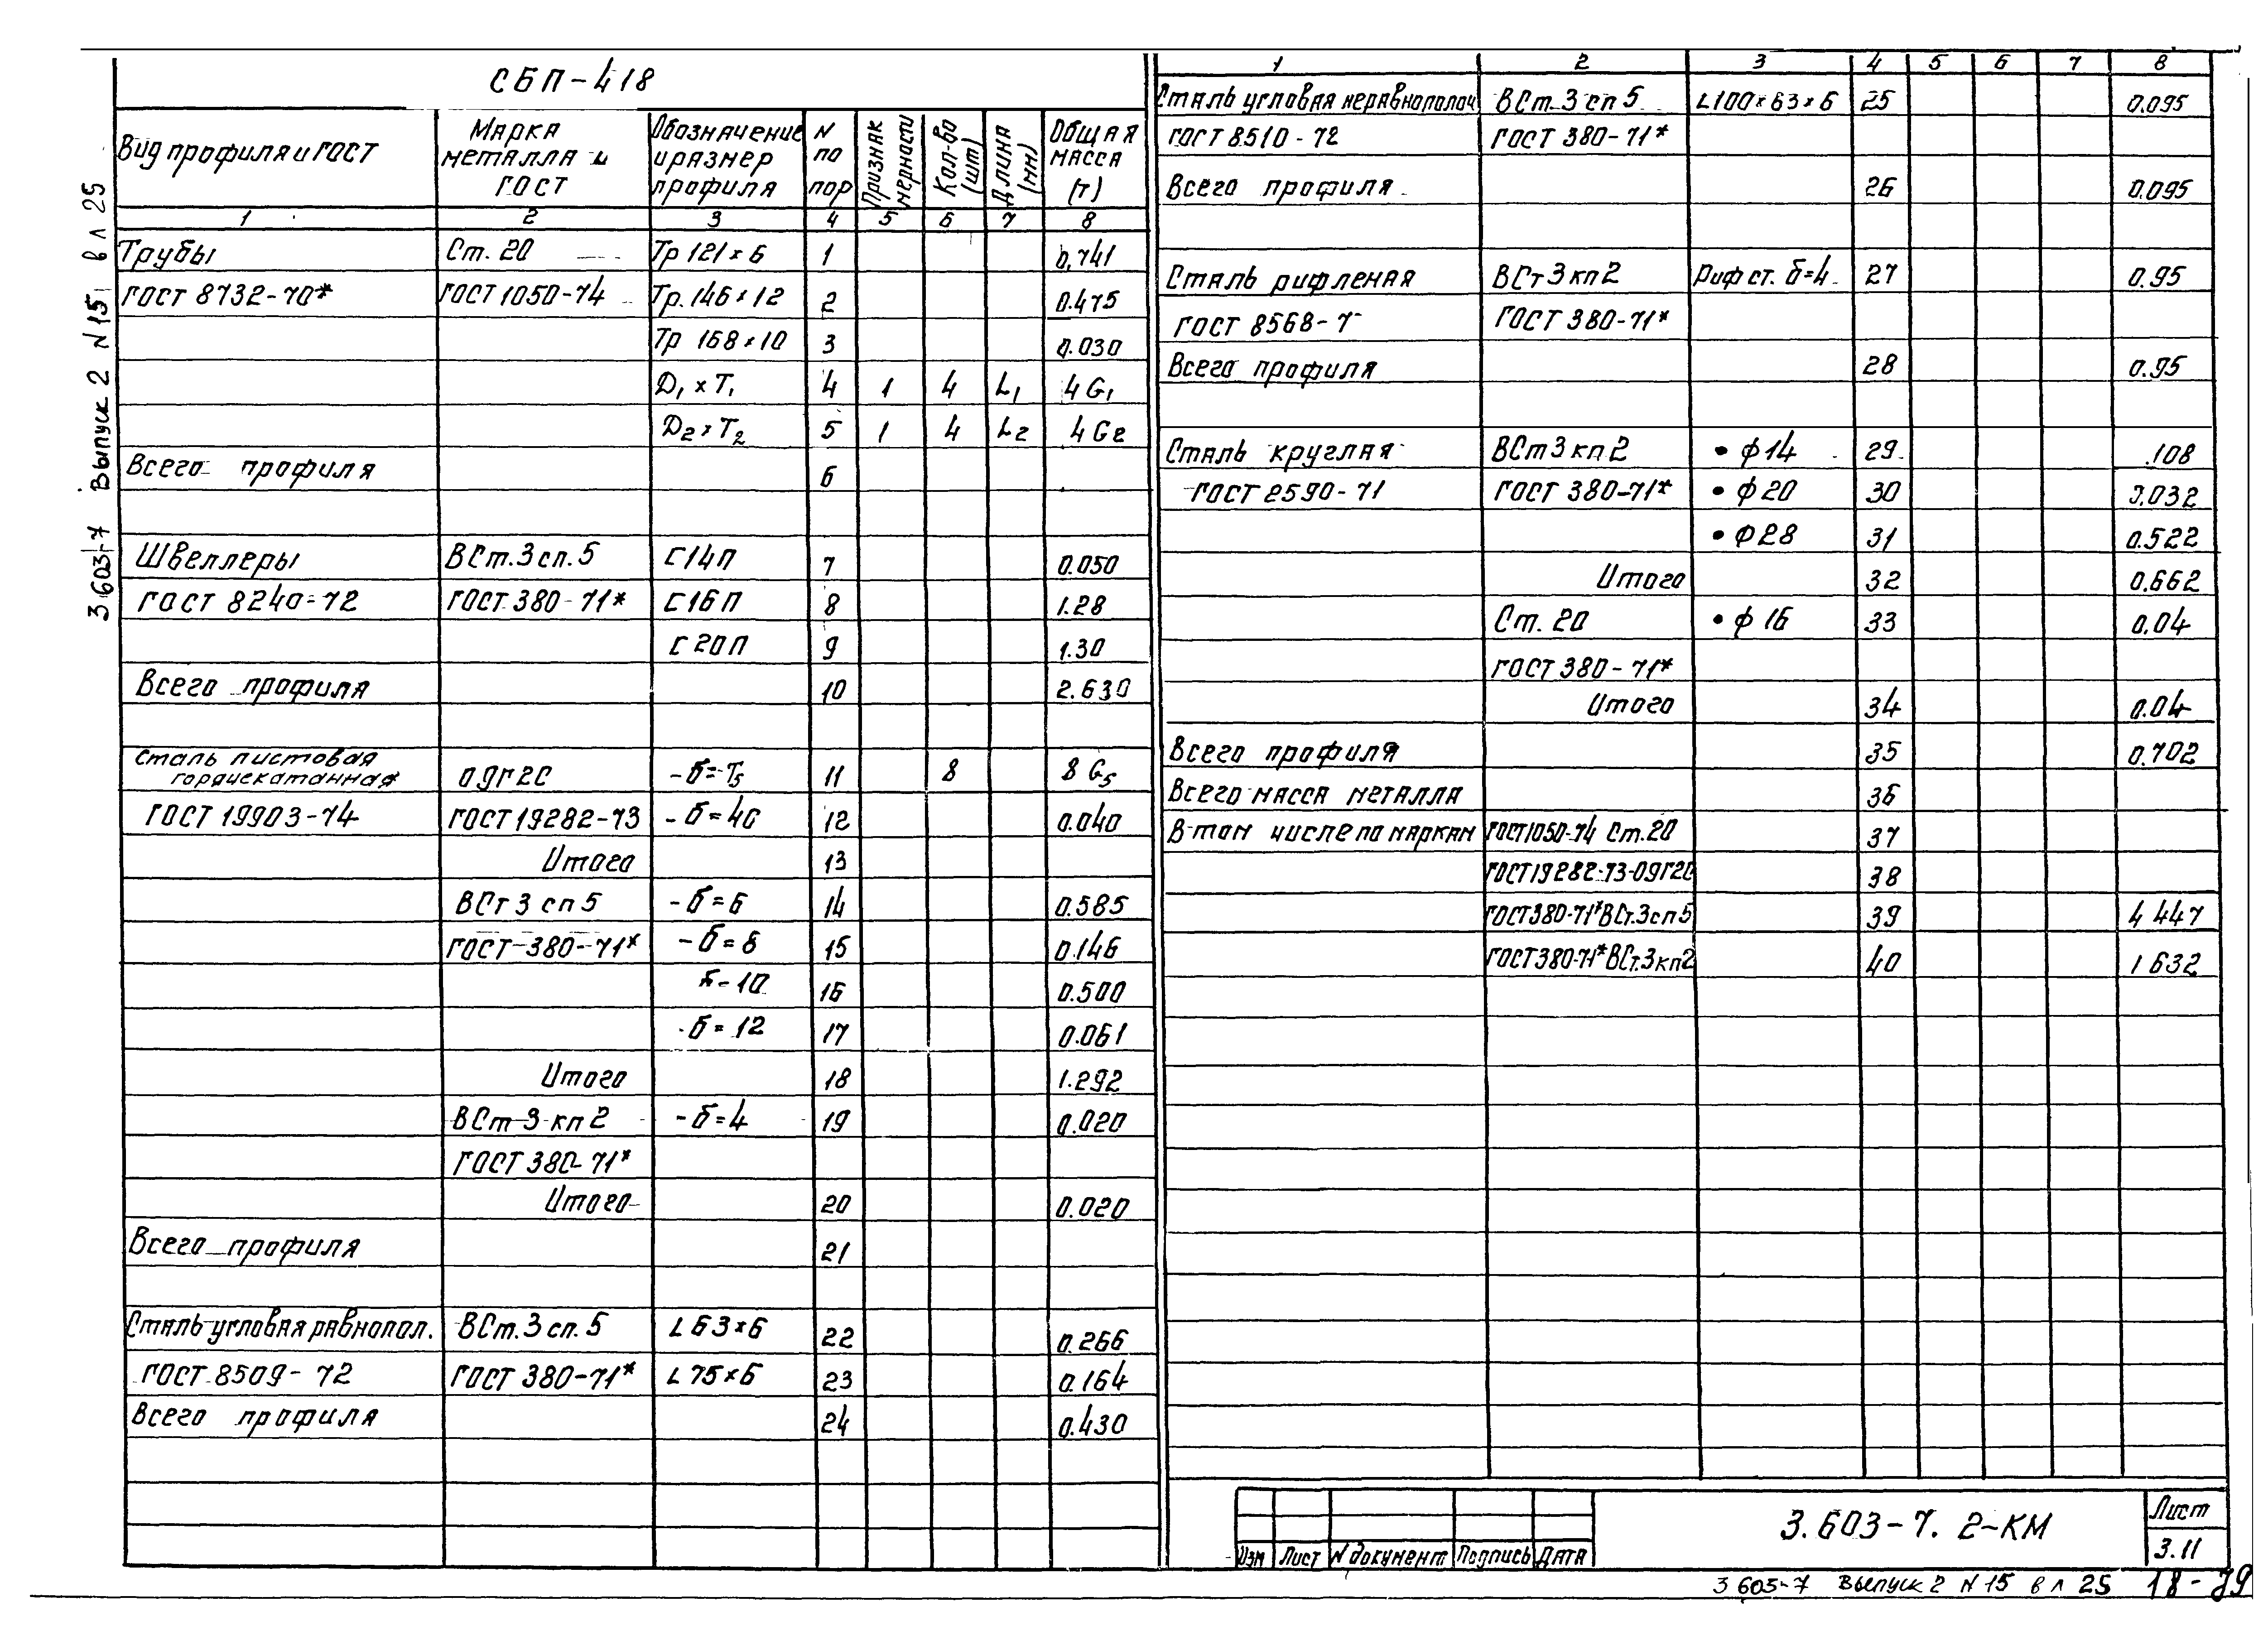 СБП-418
Вид профиля и ГОСТ | Марка металла и ГОСТ | Обозначение и размер профиля | N по пор | Признак мерности | Кол-во (шт) | Длина (мм) | Общая масса (т)
1 2 3 4 5 6 7 8
Трубы Ст. 20 Тр 121×6 1 0,741
ГОСТ 8732-70* ГОСТ 1050-74 Тр. 146×12 2 0.475
Тр 168×10 3 0.030
D1 × T1 4 1 4 L1 4 G1
D2 × T2 5 1 4 L2 4 G2
Всего профиля 6
Швеллеры ВСт.3 сп.5 С14П 7 0.050
ГОСТ 8240-72 ГОСТ 380-71* С16П 8 1.28
С20П 9 1.30
Всего профиля 10 2.630
Сталь листовая
горячекатанная 09Г2С -б=T5 11 8 8 G5
ГОСТ 19903-74 ГОСТ 19282-73 -б=40 12 0.040
Итого 13
ВСт 3 сп 5 -б=6 14 0.585
ГОСТ-380-71* -б=8 15 0.146
б=10 16 0.500
-б=12 17 0.061
Итого 18 1.292
ВСт 3 кп 2 -б=4 19 0.020
ГОСТ 380-71*
Итого 20 0.020
Всего профиля 21
Сталь угловая равнопол. ВСт.3 сп.5 L 63×6 22 0.266
ГОСТ 8509-72 ГОСТ 380-71* L 75×6 23 0.164
Всего профиля 24 0.430
1 2 3 4 5 6 7 8
Сталь угловая неравнополоч ВСт.3 сп 5 L100×63×6 25 0.095
ГОСТ 8510-72 ГОСТ 380-71*
Всего профиля 26 0.095
Сталь рифленая ВСт 3 кп 2 Риф ст. б=4 27 0.95
ГОСТ 8568-7 ГОСТ 380-71*
Всего профиля 28 0.95
Сталь круглая ВСт 3 кп 2 • ф14 29 .108
ГОСТ 2590-71 ГОСТ 380-71* • ф20 30 0.032
• ф28 31 0.522
Итого 32 0.662
Ст. 20 • ф16 33 0.04
ГОСТ 380-71*
Итого 34 0.04
Всего профиля 35 0.702
Всего масса металла 36
В том числе по маркам ГОСТ 1050-74 Ст.20 37
ГОСТ 19282-73-09Г2С 38
ГОСТ 380-71* ВСт.3 сп 5 39 4 447
ГОСТ 380-71* ВСт.3 кп 2 40 1 632
3.603-7. 2-КМ
Лист
3.11
Изм Лист N документ Подпись Дата
3 603-7 Выпуск 2 N 15 в л 25 18-79
3 603-7 Выпуск 2 N 15 в л 25